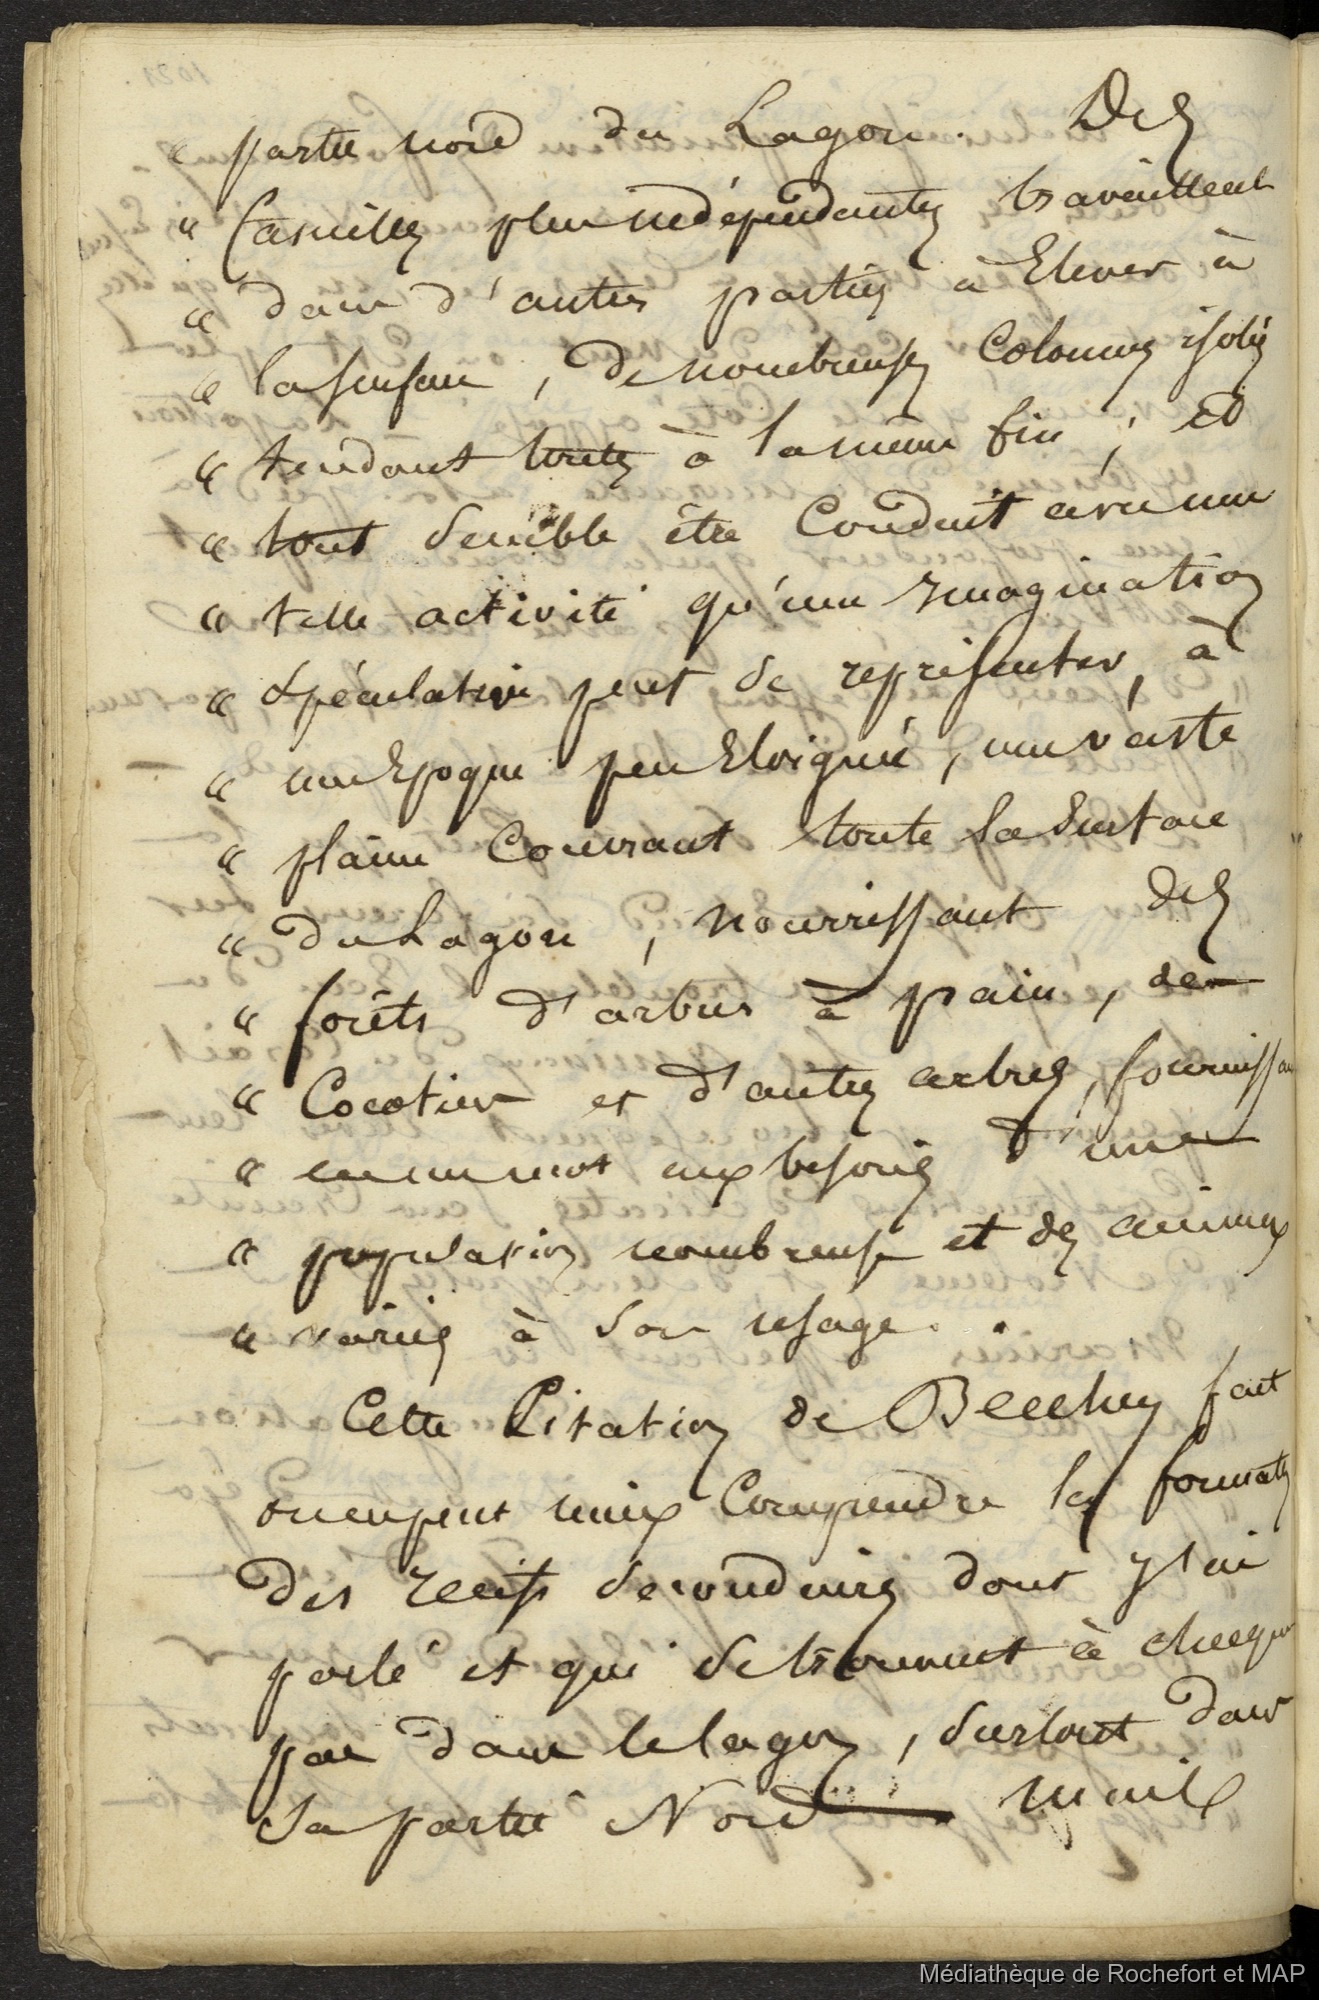 " partie nord du Lagon. Des
" familles plus indépendantes travaillent
" dans d'autres parties à Elever à
" la surface, de nombreuses Colonnes isolés
" tendant toutes à la même fin ; et
" tout semble être Conduit avec une
" telle activité qu'une Imagination
" spéculative peut se représenter, à
" une Epoque peu Eloignée, une vaste
" plaine Couvrant toute la surface
" du Lagon, nourrissant des
" forêts d'arbres à pain, de
" Cocotiers et d'autres arbres, fournissant
" en un mot aux besoins d'une
" population nombreuse et des animaux
" variés à son usage.
Cette Citation de Beechey fait
on ne peut mieux Comprendre la
des récifs secondaires dont j'ai
parlé et qui se trouvent à chaque
pas dans le lagon, surtout dans
sa partie Nord mais
Médiathèque de Rochefort et MAP